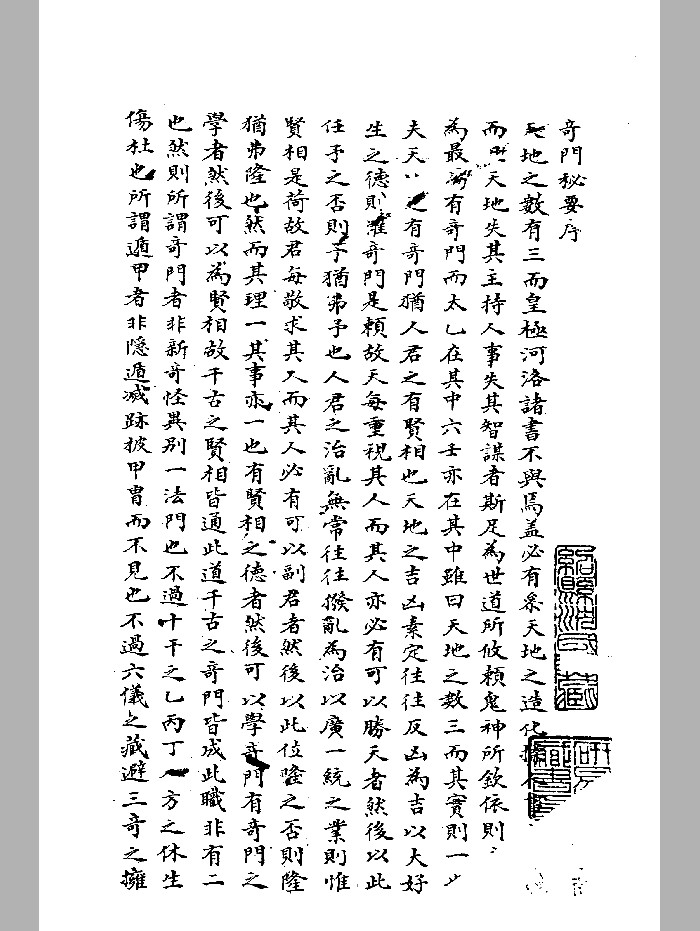 奇門秘要序
天地之數有三而皇極河洛諸書不與焉盖必有奈天地之造化
而天地失其主持人事失其智謀者斯足為世道所攸賴鬼神所欽依則
為最有奇門而太乙在其中六壬亦在其中雖曰天地之數三而其實則一
夫天之有奇門猶人君之有賢相也天地之吉凶素定往往反凶為吉以大好
生之德則惟奇門是賴故天每重視其人而其人亦必有可以勝天者然後以此
任予之否則予猶弗予也人君之治亂無常往往撥亂為治以廣一統之業則惟
賢相是荷故君每敬求其人而其人必有可以副君者然後以此位隆之否則隆
猶弗隆也然而其理一其事亦一也有賢相之德者然後可以學奇門有奇門之
學者然後可以為賢相故千古之賢相皆通此道千古之奇門皆成此職非有二
也然則所謂奇門者非新奇怪異别一法門也不過十干之乙丙丁八方之休生
傷杜也所謂遁甲者非隱遁滅跡披甲冑而不見也不過六儀之藏避三奇之擁